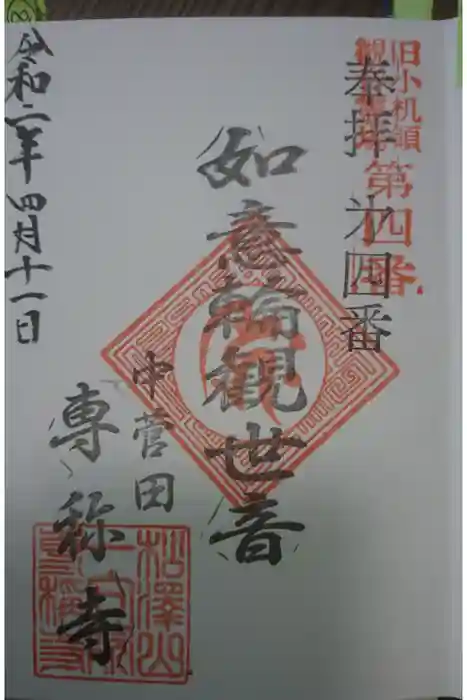 旧小机領
観音霊場
第四番
奉拝 第四番
如意輪観世音
中菅田
専称寺
令和二年四月十一日
松澤山
専稱寺